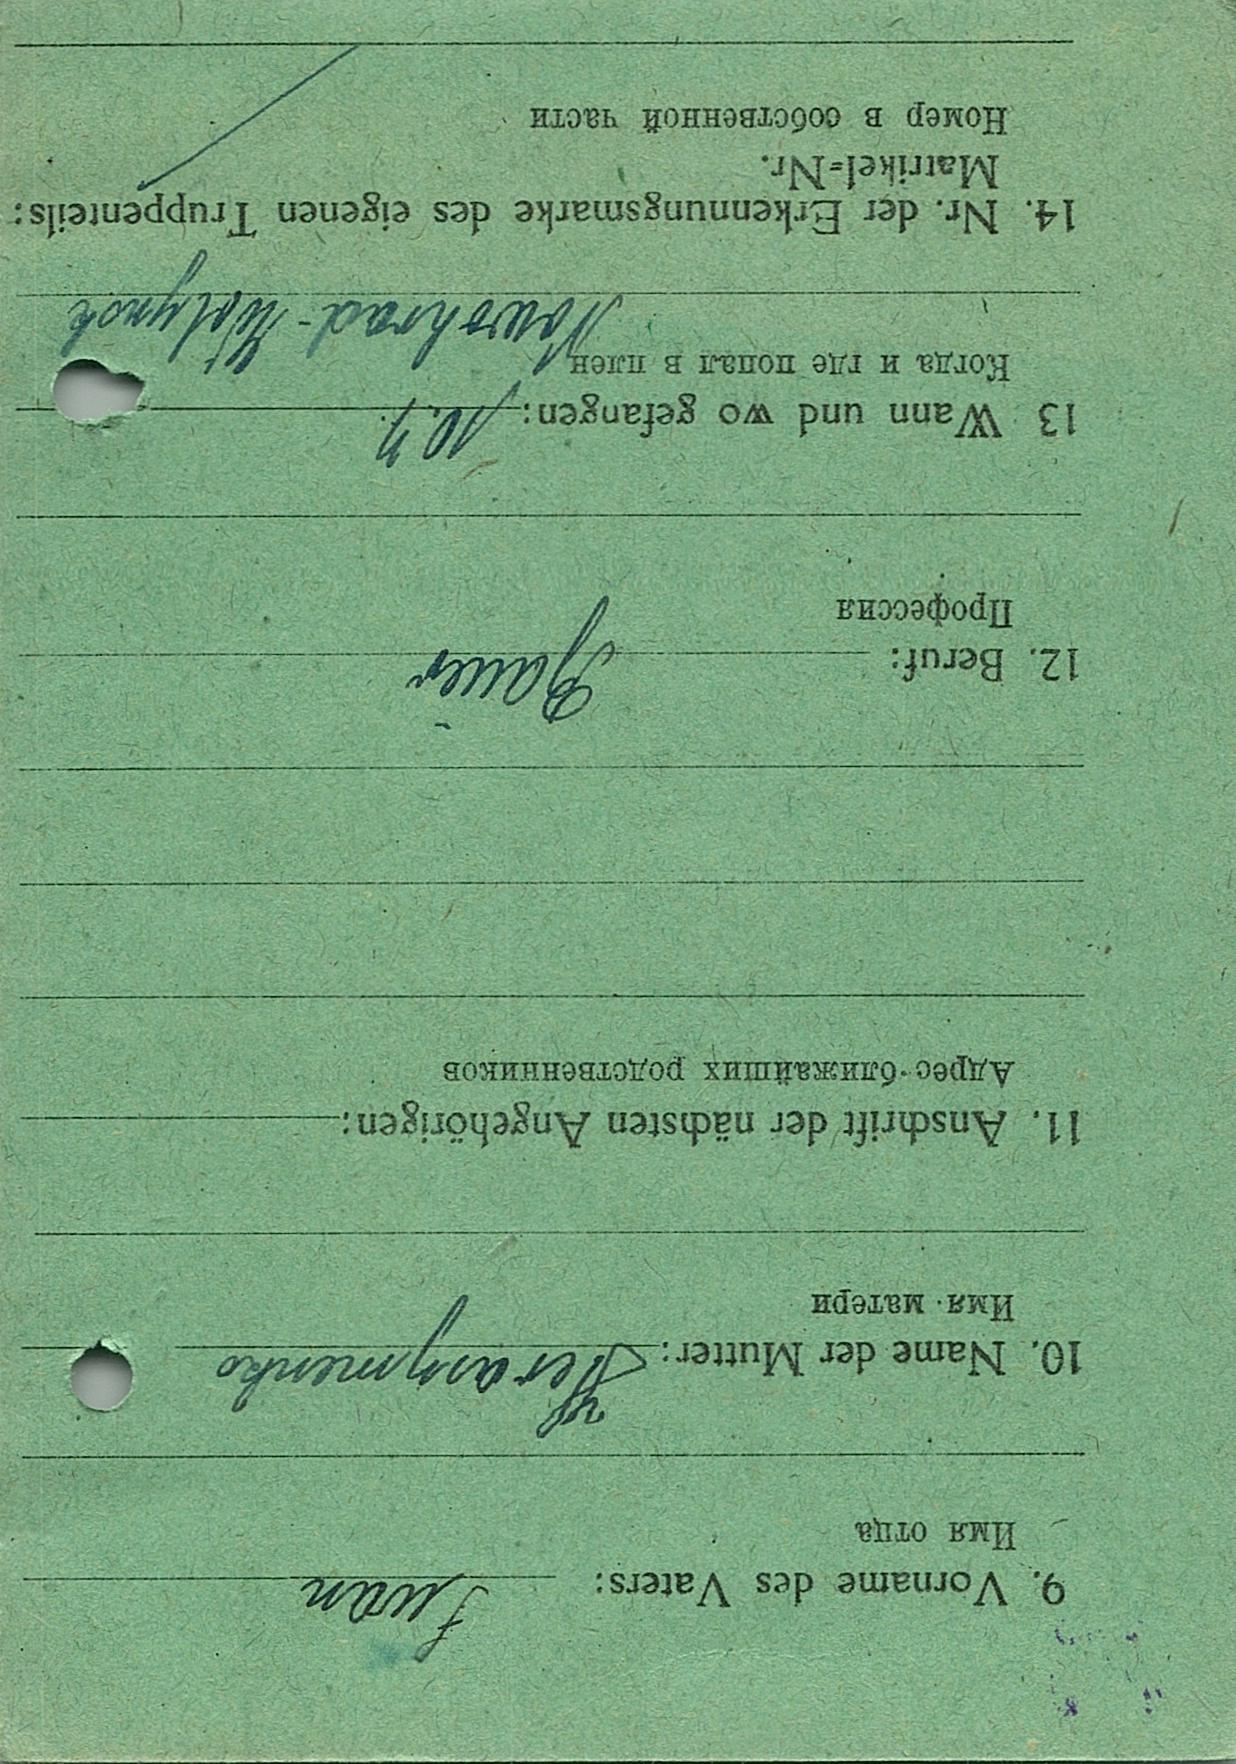 9. Vorname des Vaters: Iwan
Имя отца
10. Name der Mutter: Herasymenko
Имя матери
11. Anschrift der nächsten Angehörigen:
Адрес ближайших родственников
12. Beruf: Bauer
Профессия
13 Wann und wo gefangen: 10.7.
Когда и где попал в плен Nowohrad-Wolynsk
14. Nr. der Erkennungsmarke des eigenen Truppenteils:
Matrikel=Nr.
Номер в собственной части